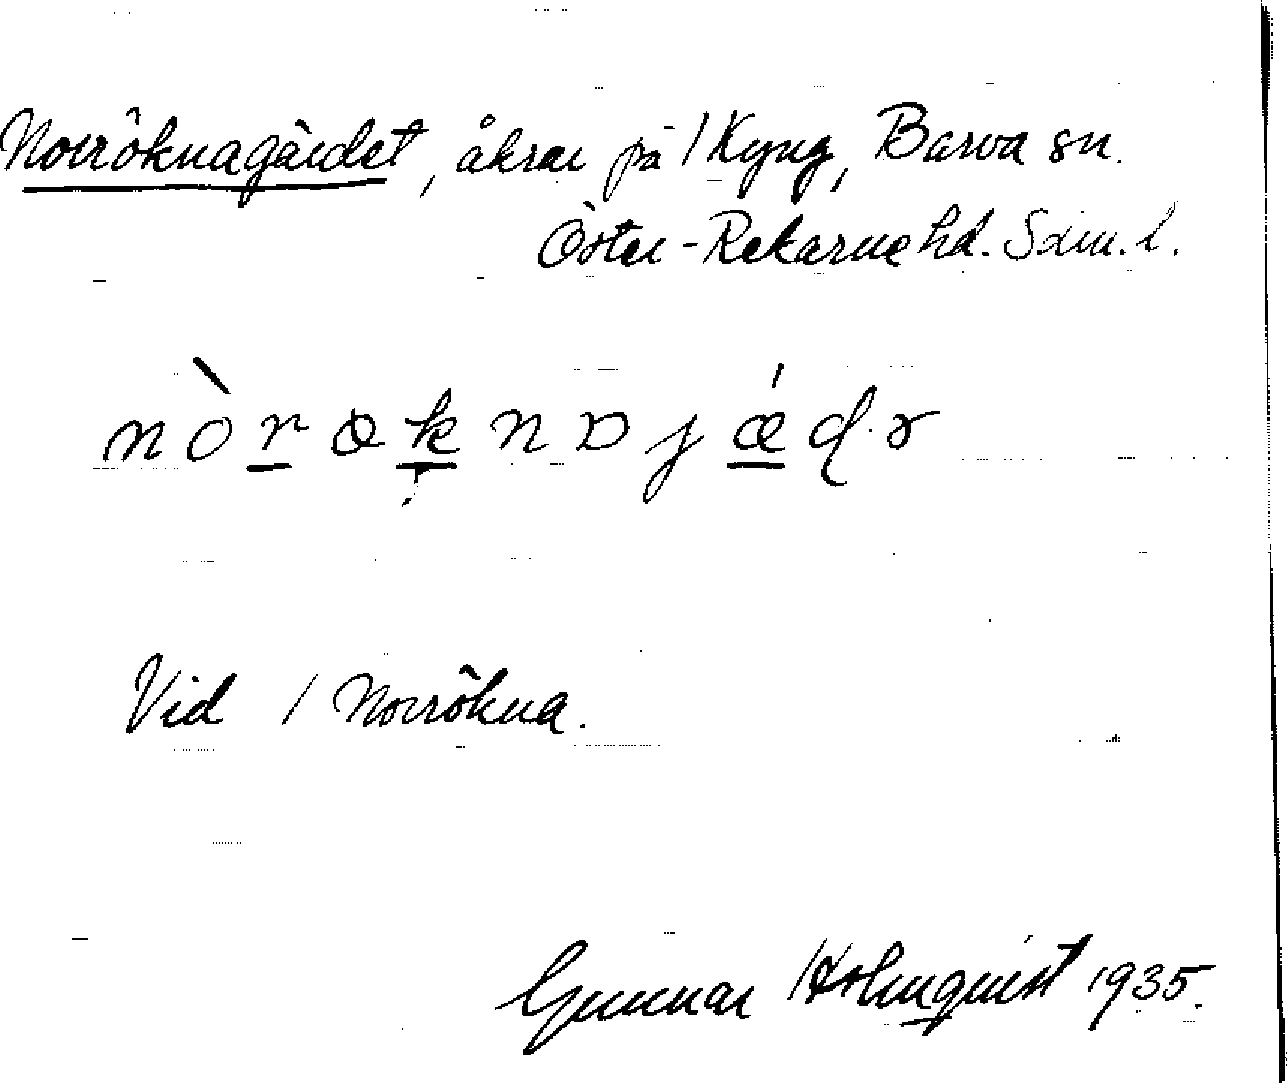 Norröknagärdet, åkrar på / Kyng, Barva sn.
Öster-Rekarne hd. Söm. l.
Vid / Norrökna.
Gunnar Holmquist 1935.